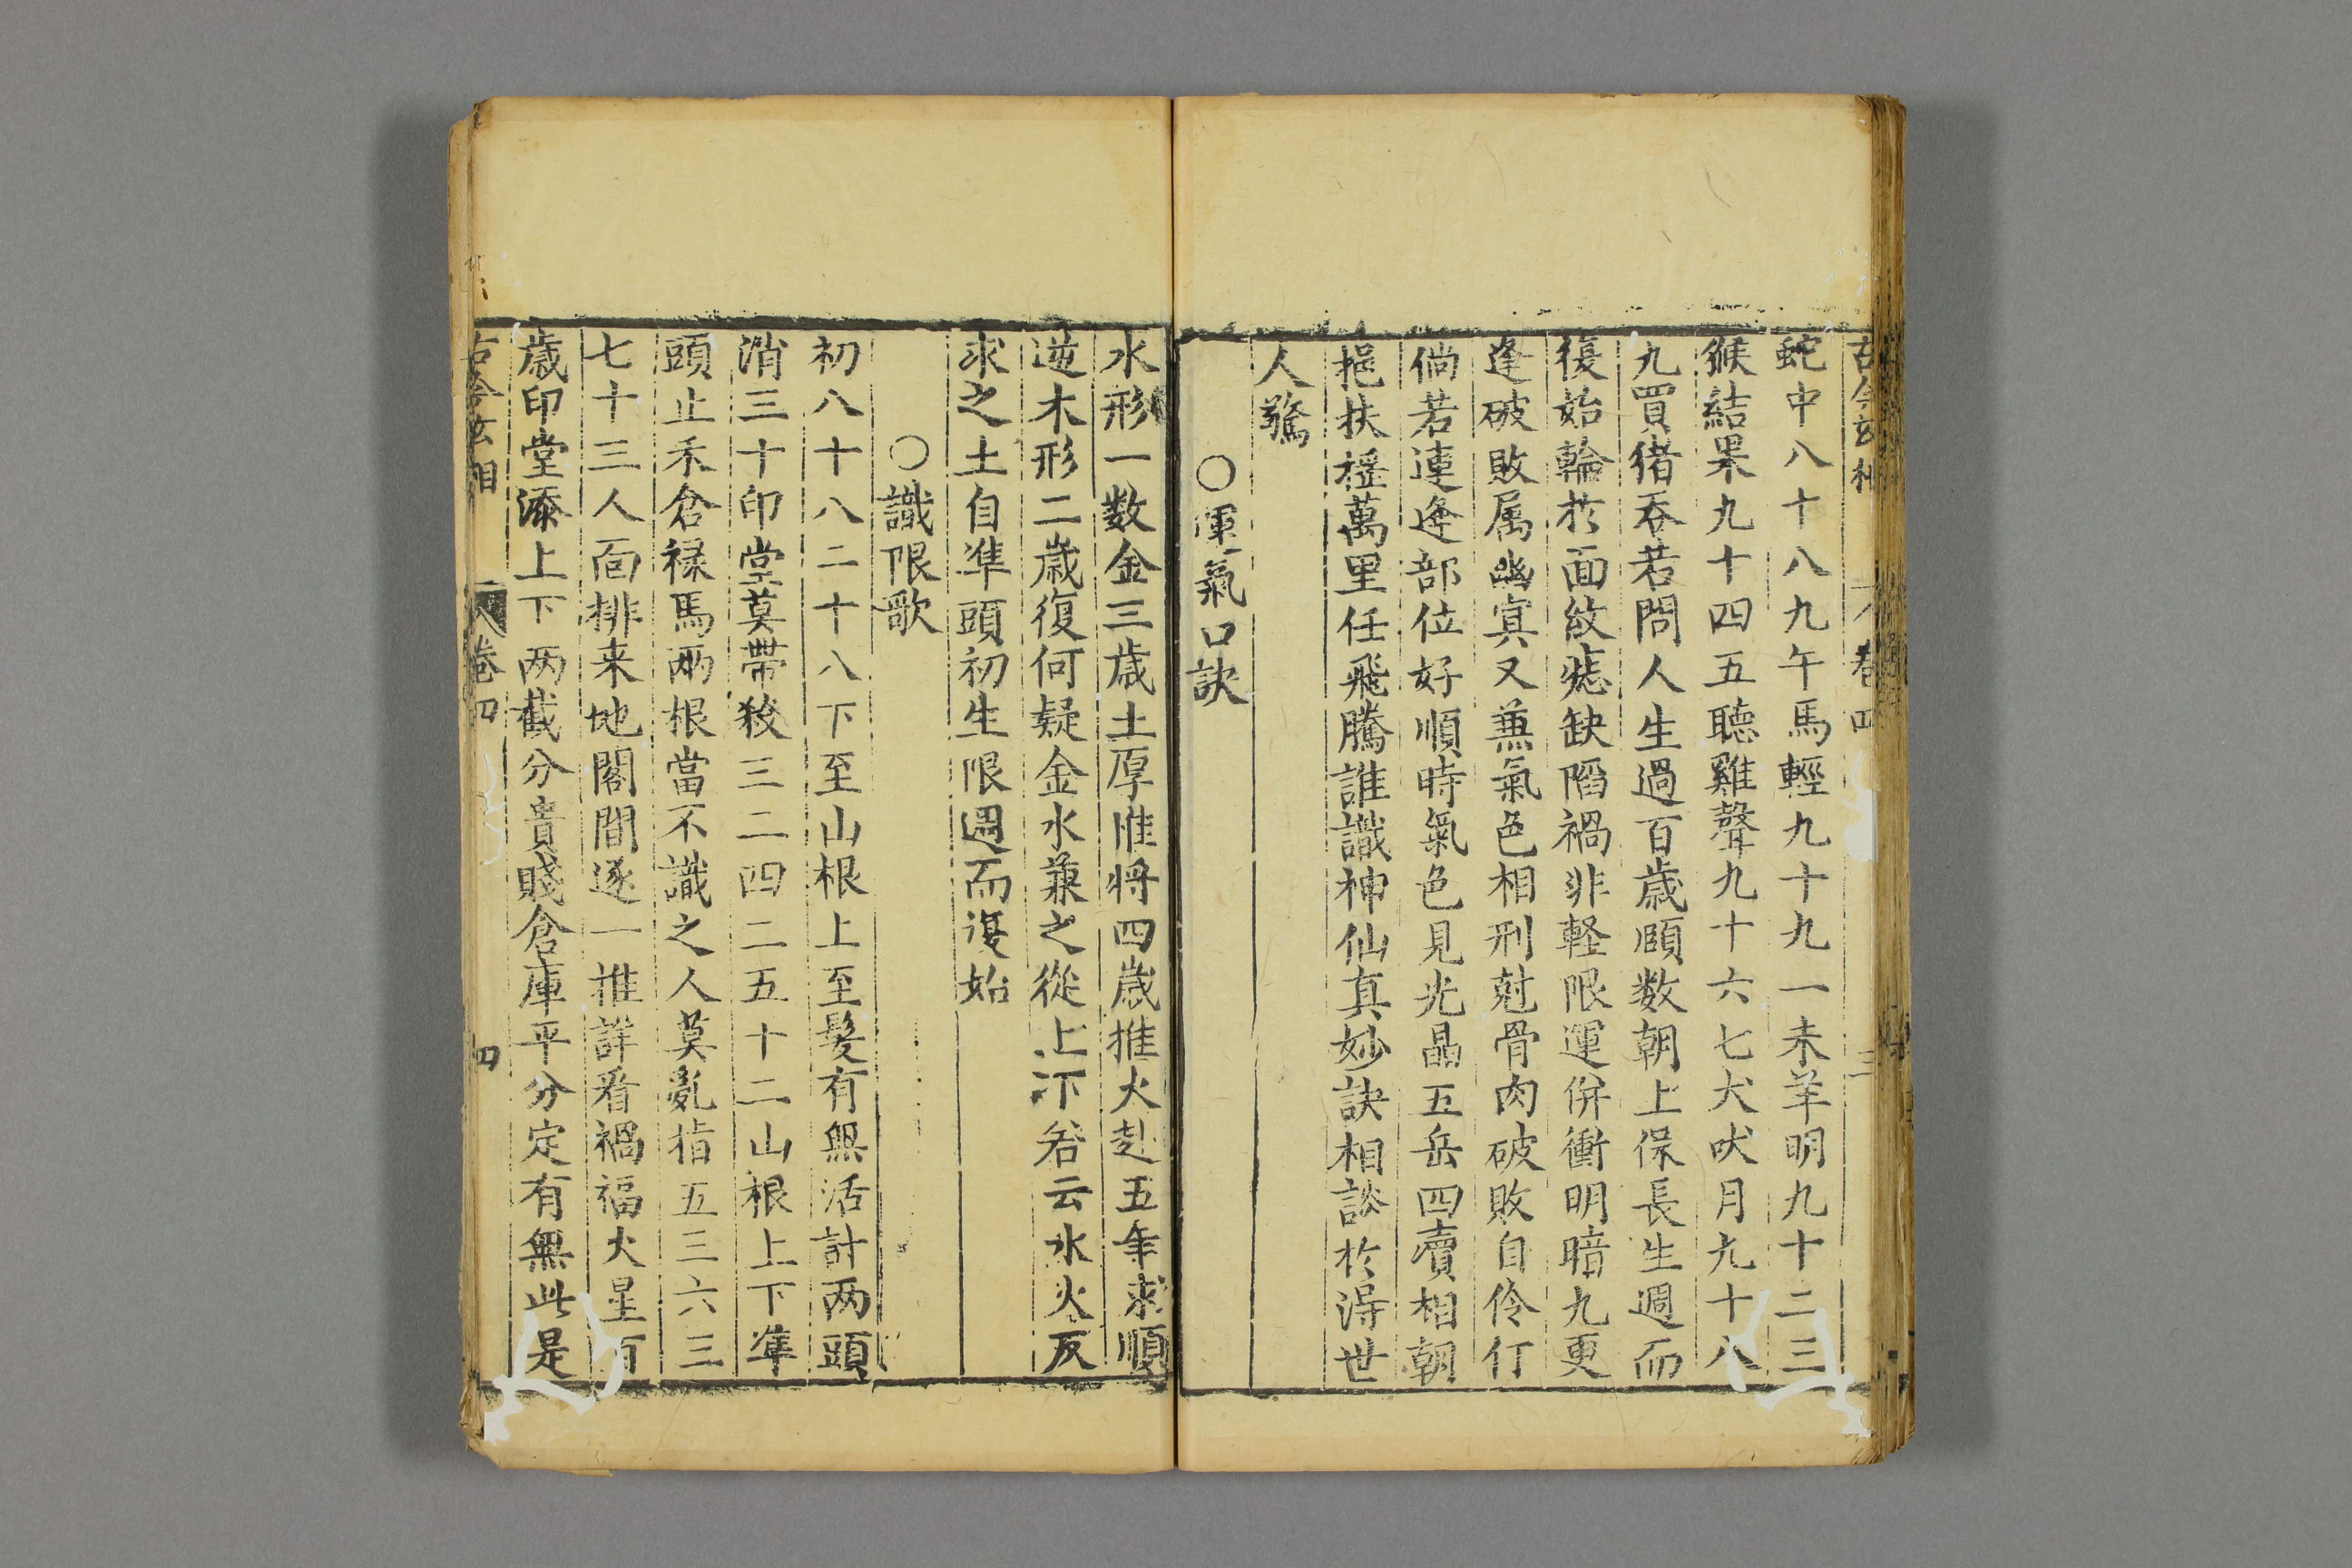 古今玄相 卷四 三
蛇中八十八九午馬輕九十九一未羊明九十二三
猴結果九十四五聽雞聲九十六七犬吠月九十八
九買猪吞若問人生過百歲頤数朝上保長生週而
復始輪於面紋痣缺陷禍非軽限運併衝明暗九更
逢破敗属幽冥又兼氣色相刑尅骨肉破敗自伶仃
倘若連逢部位好順時氣色見光晶五岳四瀆相朝
挹扶摇萬里任飛騰誰識神仙真妙訣相談於得世
人驚
○運氣口訣
水形一数金三歲土厚惟将四歲推火赴五年求順
逆木形二歲復何疑金水兼之從上下若云水火反
求之土自準頭初生限週而復始
○識限歌
初八十八二十八下至山根上至髮有無活計两頭
消三十印堂莫帶殺三二四二五十二山根上下準
頭止禾倉禄馬两根當不識之人莫亂指五三六三
七十三人面排来地閣間逐一推詳看禍福火星百
歲印堂添上下两截分貴賤倉庫平分定有無此是
古今玄相 卷四 四